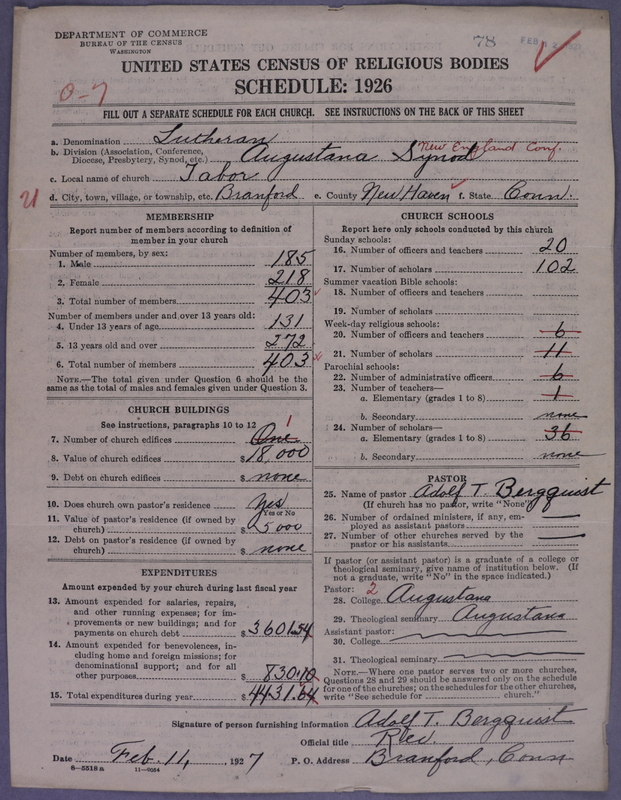 DEPARTMENT OF COMMERCE
BUREAU OF THE CENSUS
WASHINGTON
78
FEB
UNITED STATES CENSUS OF RELIGIOUS BODIES
SCHEDULE: 1926
0-7
FILL OUT A SEPARATE SCHEDULE FOR EACH CHURCH. SEE INSTRUCTIONS ON THE BACK OF THIS SHEET
a. Denomination Lutheran
b. Division (Association, Conference, Diocese, Presbytery, Synod, etc.) Augustana Synod New England Conf.
c. Local name of church Tabor
21
d. City, town, village, or township, etc. Branford e. County New Haven f. State Conn.
MEMBERSHIP
Report number of members according to definition of
member in your church
Number of members, by sex:
1. Male 185
2. Female 218
3. Total number of members 403
Number of members under and over 13 years old:
4. Under 13 years of age 131
5. 13 years old and over 272
6. Total number of members 403
NOTE.—The total given under Question 6 should be
same as the total of males and females given under Question 3.
CHURCH BUILDINGS
See instructions, paragraphs 10 to 12
7. Number of church edifices One 1
8. Value of church edifices $ 18,000
9. Debt on church edifices $ none
10. Does church own pastor's residence Yes
Yes or No
11. Value of pastor's residence (if owned by
church) $ 5000
12. Debt on pastor's residence (if owned by
church) $ none
EXPENDITURES
Amount expended by your church during last fiscal year
13. Amount expended for salaries, repairs,
and other running expenses; for im-
provements or new buildings; and for
payments on church debt $ 3601.54
14. Amount expended for benevolences, in-
cluding home and foreign missions; for
denominational support; and for all
other purposes $ 830.10
15. Total expenditures during year $ 4431.64
CHURCH SCHOOLS
Report here only schools conducted by this church
Sunday schools:
16. Number of officers and teachers 20
17. Number of scholars 102
Summer vacation Bible schools:
18. Number of officers and teachers
19. Number of scholars
Week-day religious schools:
20. Number of officers and teachers 6
21. Number of scholars 11
Parochial schools:
22. Number of administrative officers 6
23. Number of teachers—
a. Elementary (grades 1 to 8) 1
b. Secondary none
24. Number of scholars—
a. Elementary (grades 1 to 8) 36
b. Secondary none
PASTOR
25. Name of pastor Adolf T. Bergquist
(If church has no pastor, write "None")
26. Number of ordained ministers, if any, em-
ployed as assistant pastors
27. Number of other churches served by the
pastor or his assistants
If pastor (or assistant pastor) is a graduate of a college or
theological seminary, give name of institution below. (If
not a graduate, write "No" in the space indicated.)
Pastor: 2
28. College Augustana
29. Theological seminary Augustana
Assistant pastor:
30. College
31. Theological seminary
NOTE.—Where one pastor serves two or more churches,
Questions 28 and 29 should be answered only on the schedule
for one of the churches; on the schedules for the other churches,
write "See schedule for church."
Signature of person furnishing information Adolf T. Bergquist
Official title Rev.
Date Feb. 11, 1927 P. O. Address Branford, Conn
8—5518a 11—9054